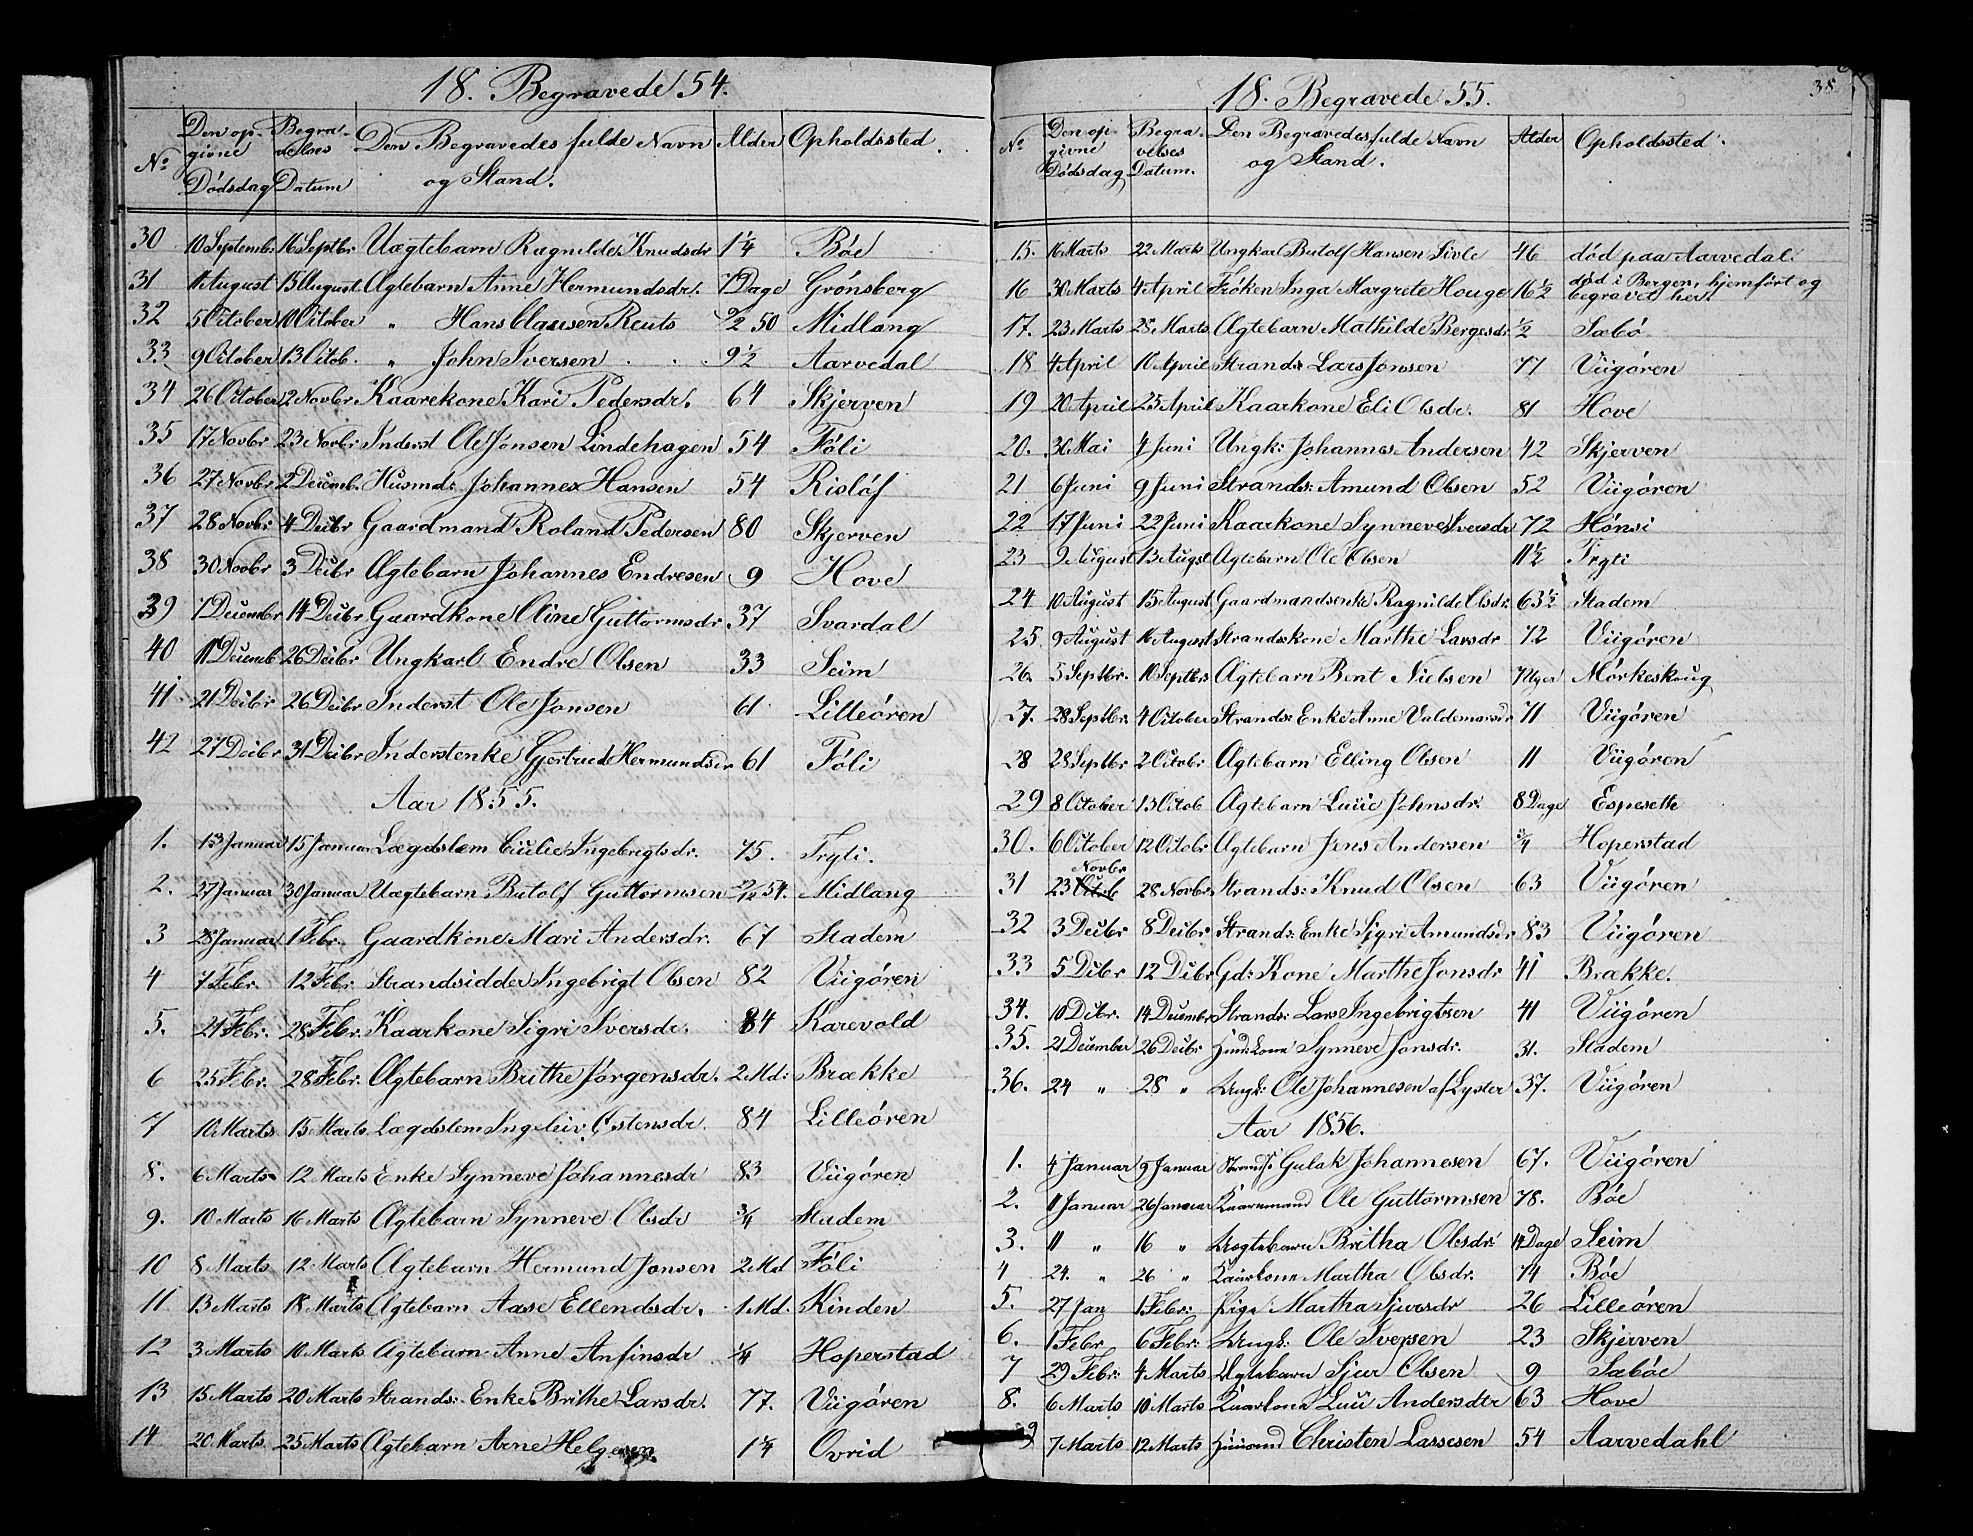 18. Begravede 54.
No Den opgivne Dødsdag Begravelses Datum Den Begravedes fulde Navn og Stand. Alder Opholdssted.
30 10 Septembr 16 Septbr Uægtebarn Ragnilde Knudsdr 1 1/4 Bøe
31 11 August 15 August Ægtebarn Anne Hermundsdr. 7 Dage Grønsberg
32 5 October 10 October " Hans Clausen Reuts 9/2 50 Midlang
33 9 October 13 Octob. " John Iversen 9 1/2 Aarvedal
34 26 October 2 Novbr Kaarekone Kari Pedersdr. 64 Skjerven
35 17 Novbr 23 Novbr Inderst Ole Jonsen Lindehagen 54 Føli
36 27 Novbr 2 Decemb. Husmd: Johannes Hansen 54 Risløf
37 28 Novbr 4 Decbr Gaardmand Roland Pedersen 80 Skjerven
38 30 Novbr 3 Decbr Ægtebarn Johannes Endresen 9 Hove
39 7 Decembr 14 Decbr Gaardkone Oline Guttormsdr 37 Svardal
40 11 Decemb 26 Decbr Ungkarl Endre Olsen 33 Seim
41 21 Decbr 26 Decbr Inderst Ole Jonsen 61 Lilleøren
42 27 Decbr 31 Decbr Inderstenke Gjertrud Hermundsdr 61 Føli
Aar 1855.
1. 13 Januar 15 Januar Lægdslem Ciicilie Ingebrigtsdr. 75. Tryti.
2. 27 Januar 30 Januar Uægtebarn Butolf Guttormsen 54. Midlang
3 28 Januar 1 Febr. Gaardkone Mari Andersdr. 67 Stadem
4 7 Febr. 12 Febr. Strandsidder Ingebrigt Olsen 82 Viigøren
5. 21 Febr. 28 Febr. Kaarkone Sigri Iversdr. 84 Karevold
6 25 Febr. 28 Febr. Ægtebarn Brithe Jørgensdr. 2 Md: Brække
7 10 Marts 15 Marts Lægdslem Ingeleiv Østensdr. 84 Lilleøren
8. 6 Marts 12 Marts Enke Synneve Johannesdr 83 Viigøren
9. 10 Marts 16 Marts Ægtebarn Synneve Olsdr 3/4 Stadem
10 8 Marts 12 Marts Ægtebarn Hermund Jonsen 2 Md Føli
11 13 Marts 18 Marts Ægtebarn Aase Ellendsdr. 1 Md. Kinden
12 3 Marts 10 Marts Ægtebarn Anne Anfinsdr 1/4 Hoperstad
13 15 Marts 20 Marts Strands: Enke Brithe Larsdr. 77. Viigøren
14 20 Marts 25 Marts Ægtebarn Arne Helgesen 1 1/4 Ovrid
38
18. Begravede 55.
No Den opgivne Dødsdag Begravelses Datum. Den Begravedes fulde Navn og Stand. Alder Opholdssted.
15. 16 Marts 22 Marts Ungkarl Butolf Hansen Sivle 46 død paa Aarvedal.
16 30 Marts 4 April Frøken Inga Margrete Houge 16 1/2 død i Bergen, hjemført og begravet her.
17. 23 Marts 28 Marts Ægtebarn Mathilde Bergesdr 1/2 Sæbø
18 4 April 10 April Strands Lars Jonsen 77 Viigøren
19 20 April 25 April Kaarkone Eli Olsdr. 81 Hove
20. 30 Mai 4 Juni Ungk: Johannes Andersen 42 Skjerven
21 6 Juni 9 Juni Strands: Amund Olsen 52 Viigøren
22 17 Juni 22 Juni Kaarkone Synneve Iversdr 72 Hønsi
23 9 August 13 Augst Ægtebarn Ole Olsen 11 1/2 Tryti
24 10 August 15 August Gaardmandsenke Ragnilde Olsdr. 63 1/2 Stadem
25 9 August 16 August Strandskone Marthe Larsdr 72 Viigøren
26. 5 Septbr. 10 Septbr Ægtebarn Bent Nielsen 7 Uger Mørkeskoug
27. 28 Septbr. 4 October Strands: Enke Anne Valdemarsdr 71 Viigøren
28 28 Septbr 2 Octobr Ægtebarn Elling Olsen 11 Viigøren
29 8 October 13 Octob Ægtebarn Lucie Johnsdr. 8 Dage Espeseth
30. 6 October 12 Octobr Ægtebarn Jens Andersen 3/4 Hoperstad
31 23 Novbr 28 Novbr Strands: Knud Olsen 63 Viigøren
32 3 Decbr 8 Decbr Strands: Enke Sigri Amundsdr 83 Viigøren
33 5 Dcbr 12 Dcbr Gd: Kone Marthe Jonsdr 41 Brække.
34. 10 Dcbr. 14 Decembr Strands: Lars Ingebrigtsen 41 Viigøren
35. 21 December 26 Decbr. Huusd: Kone Synneve Jonsdr. 31. Stadem
36. 24 " 28 " Ungk: Ole Johannesen af Lyster 37. Viigøren
Aar 1856.
1. 4 Januar 9 Januar Strands Gulak Johannesen 67. Viigøren
2. 11 Januar 26 Januar Kaaremand Ole Guttormsen 78. Bøe
3. 11 " 16 " Uægtebarn Britha Olsdr. 14 Dage Seim
4 24. " 26 " Kaarkone Martha Olsdr. 74 Bøe
5. 27 Jan 1 Febr: Pige Martha Sjursdr 26 Lilleøren
6. 1 Febr 6 Febr: Ungk: Ole Iversen 23 Skjerven
7 29 Febr: 4 Marts Ægtebarn Sjur Olsen 9 Sæbøe
8. 6 Marts 10 Marts Kaarkone Luci Andersdtr 63 Hove
9 7 Marts 12 Marts Huusmd Christen Lassesen 54 Aarvedahl